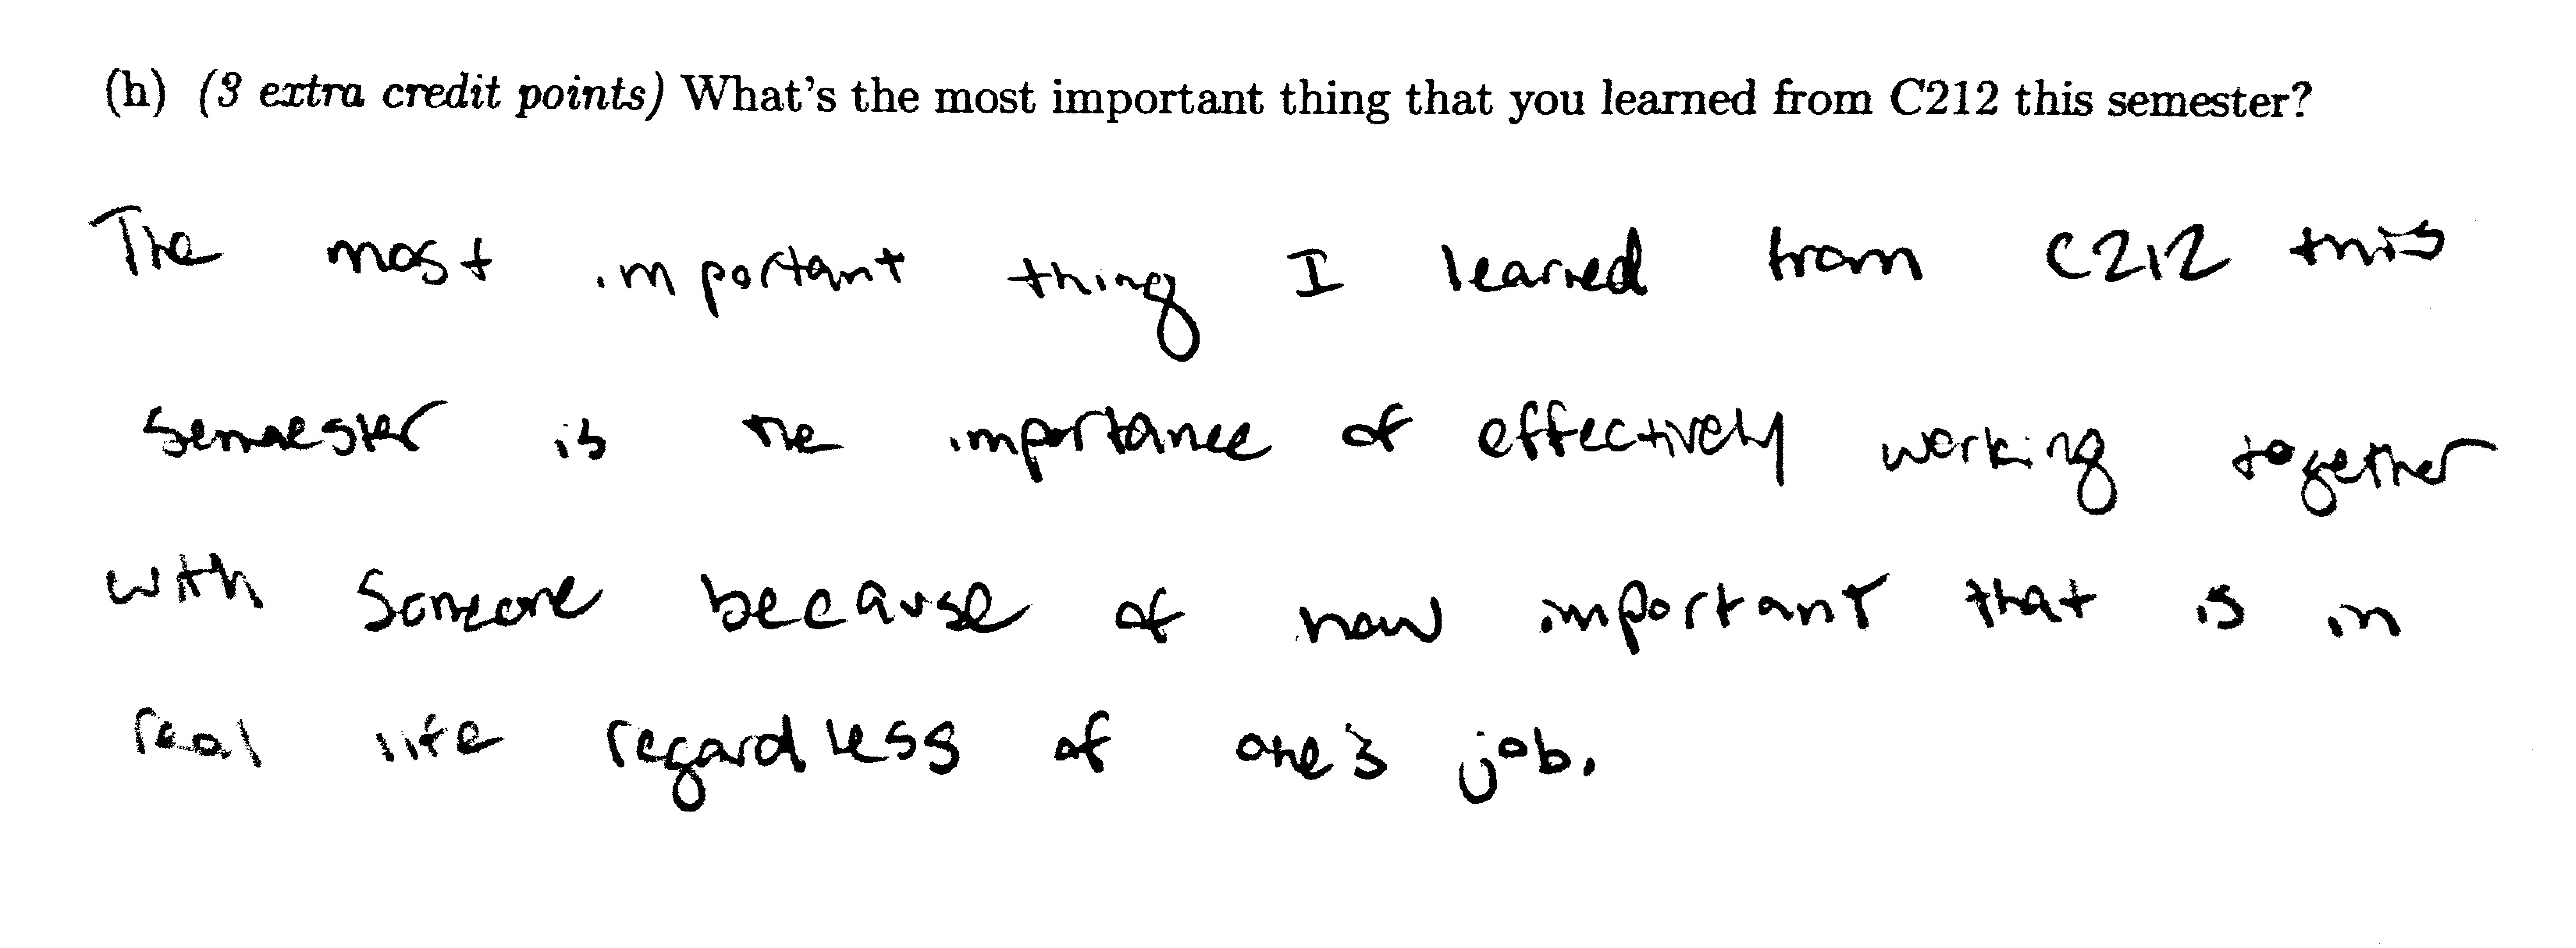 (h) (3 extra credit points) What's the most important thing that you learned from C212 this semester?
The most important thing I learned from C212 this
semester is the importance of effectively working together
with someone because of how important that is in
real life regardless of one's job.